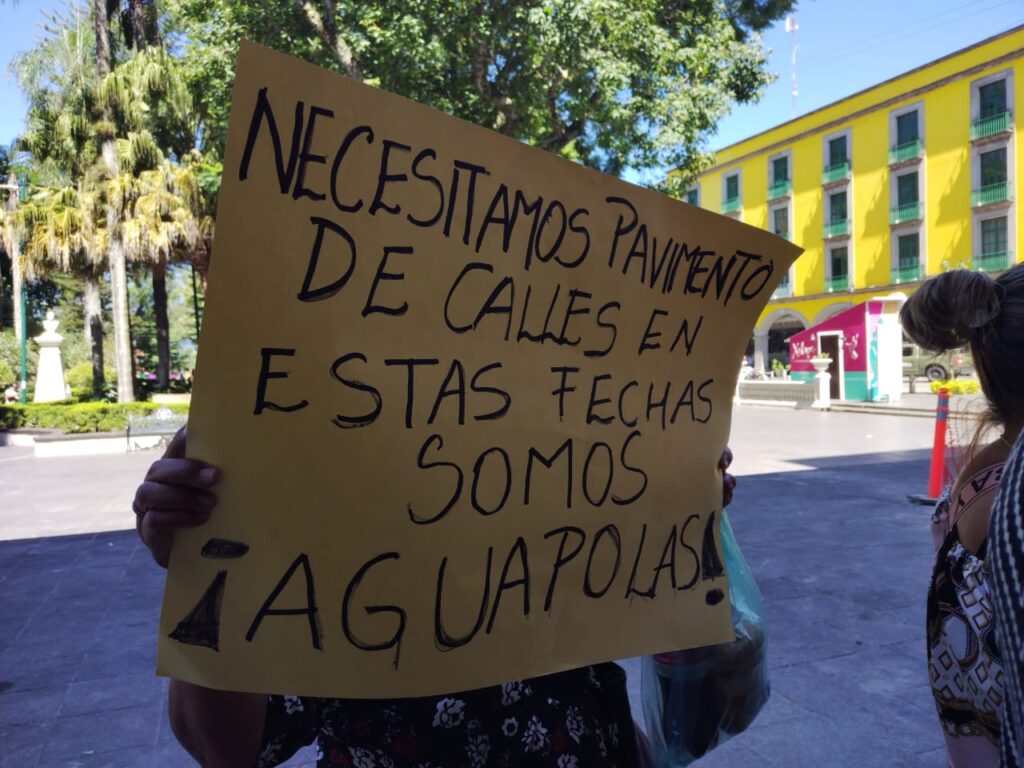 NECESITAMOS PAVIMENTO
DE CALLES EN
ESTAS FECHAS
SOMOS
¡AGUAPOLAS!